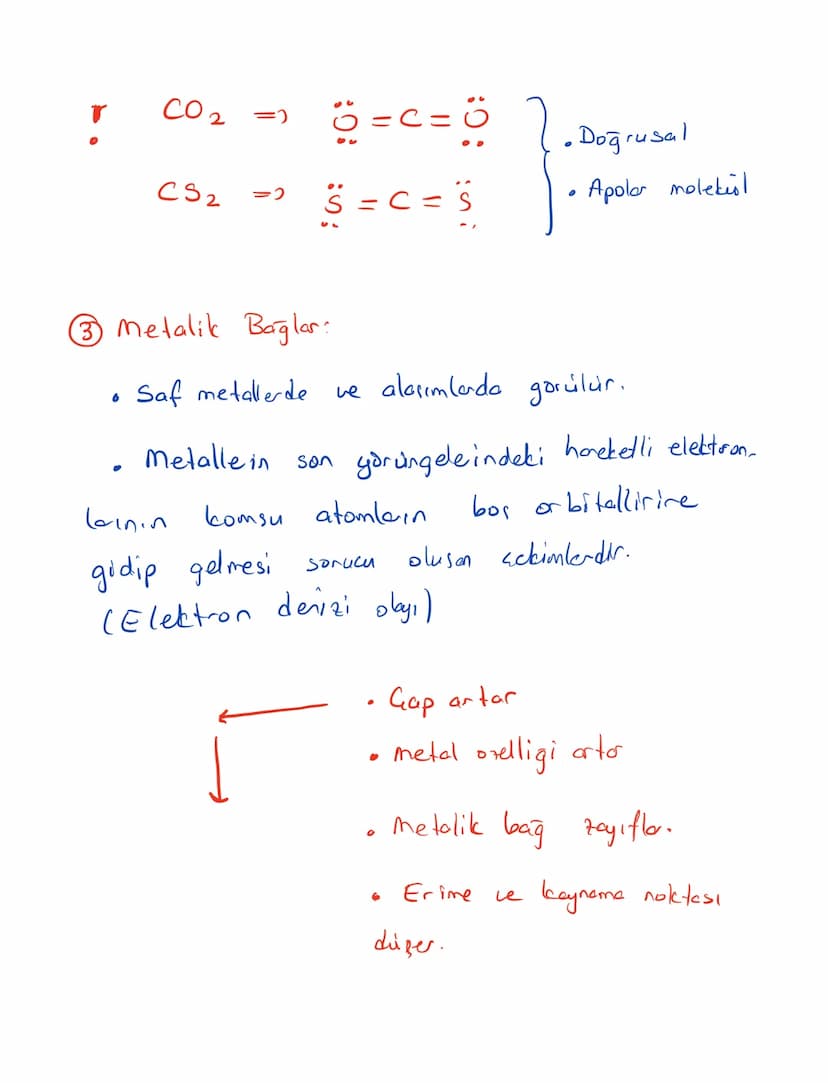 ! CO₂ => Ö = C = Ö
• Doğrusal
CS₂ => S̈ = C = S̈
• Apolar molekül
③ Metalik Bağlar:
• Saf metallerde ve alaşımlarda görülür.
• Metallein son yörüngeleindeki hareketli elektron-
laının komsu atomlaın boş orbitallirine
gidip gelmesi sonucu oluşan çekimlerdir.
(Elektron denizi olayı)
• Çap artar
• Metal özelligi artar
• Metalik bağ zayıflar.
• Erime ve kaynama noktası
düşer.